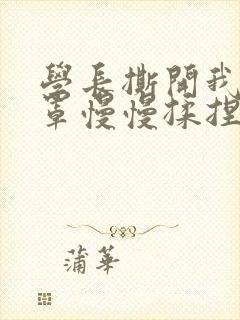 學長撕開我
罩慢慢揉捏
蒲華